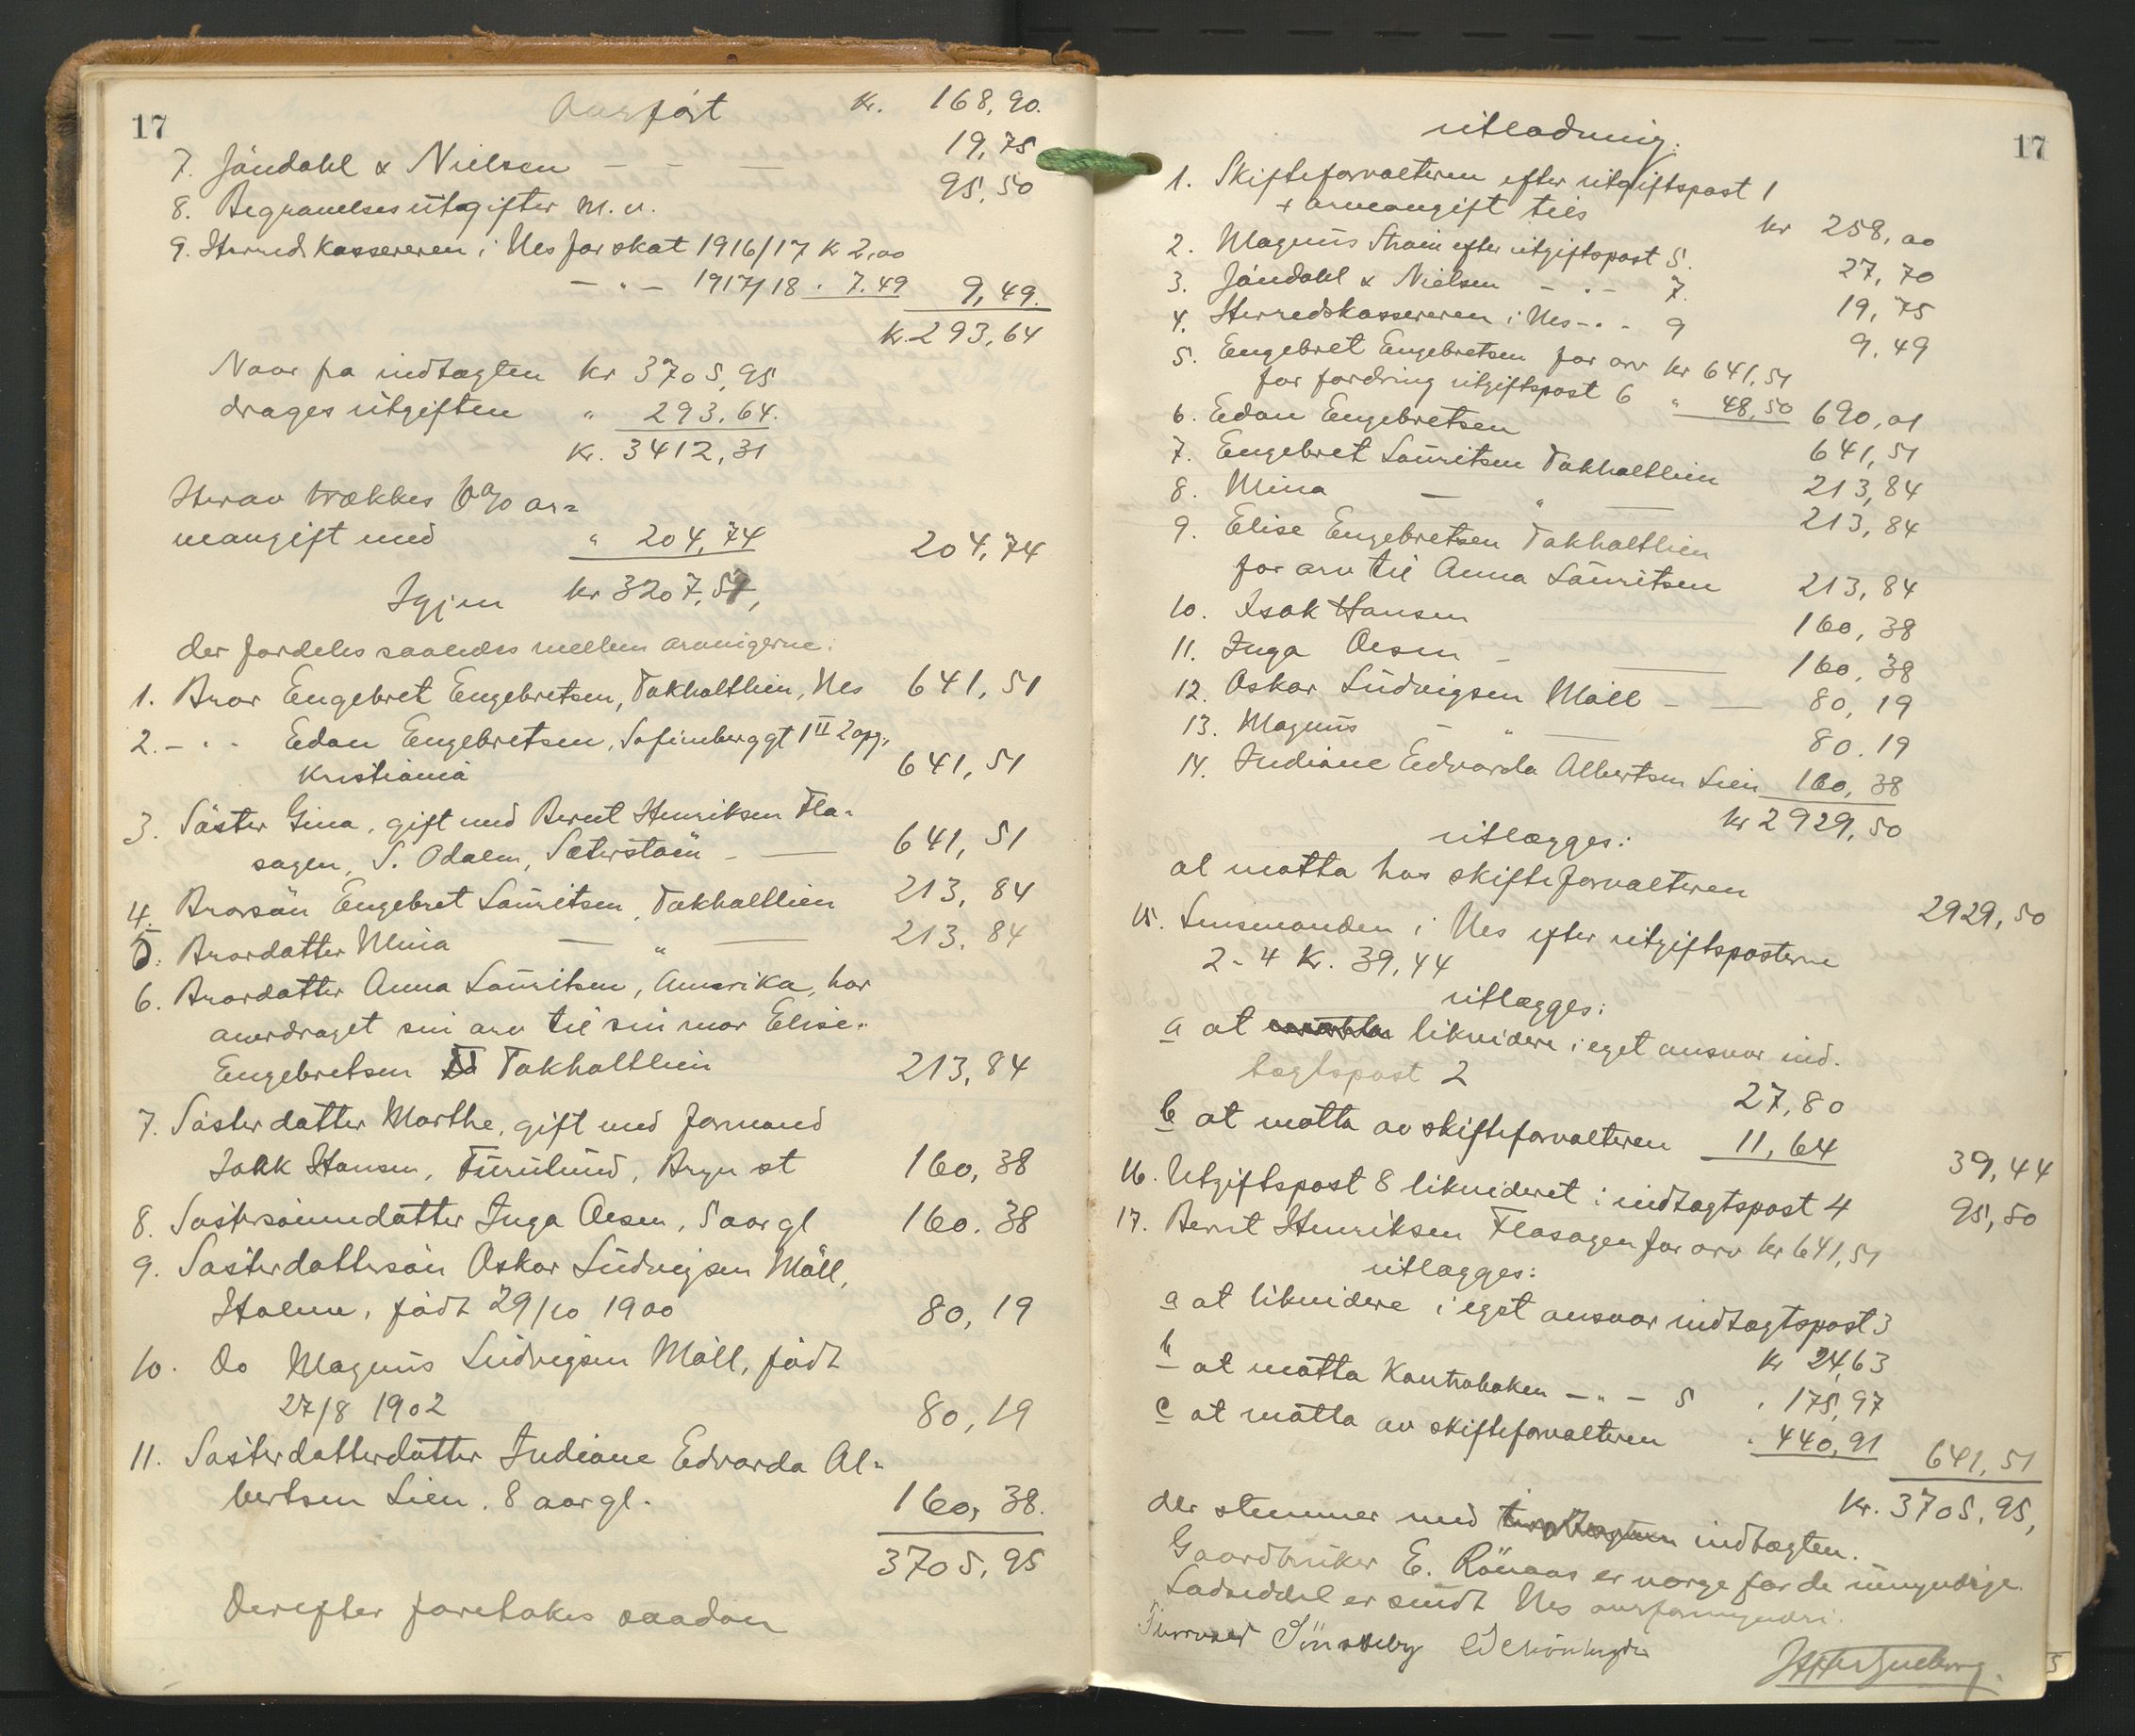 17
Overført kr. 168,90.
7. Jöndahl & Nielsen — — — 19,75
8. Begravelsesutgifter m.v. 95,50
9. Herredskassereren i Nes for skat 1916/17 k 2,00
— " — 1917/18 . 7.49 9,49.
kr. 293,64
Naar fra indtægten kr 3705,95
drages utgiften " 293,64.
kr. 3412,31
Herav trækkes 6% ar=
veavgift med " 204,74 204,74
Igjen kr 3207,57,
der fordeles saaledes mellem arvingerne:
1. Bror Engebret Engebretsen, Takholtlien, Nes 641,51
2. — " — Edon Engebretsen, Sofienberggt 1 II 2 opg,
Kristiania 641,51
3. Söster Gina, gift med Bernt Henriksen Fla-
sagen, S. Odalen, Sæterstöen — — 641,51
4. Brorsön Engebret Lauritsen, Takholtlien 213,84
5. Brordatter Mina — " — 213.84
6. Brordatter Anna Lauritsen, Amerika, har
overdraget sin arv til sin mor Elise
Engebretsen Takholtlien 213,84
7. Söster datter Marthe, gift med formand
Isak Hansen, Furulund, Bryn st 160,38
8. Söstersönnedatter Inga Oesen, 5 aar gl 160.38
9. Sösterdattersön Oskar Ludvigsen Möll,
Holmen, född 29/10 1900 80,19
10. Do Magnus Ludvigsen Möll, född
27/8 1902 80,19
11. Sösterdatterdatter Indiane Edvarda Al-
bertsen Lien. 8 aar gl. 160,38.
3705,95
Derefter foretokes saadan
17
utlodning:
1. Skifteforvalteren efter utgiftspost 1
+ arveavgift tils kr 258,00
2. Magnus Strøm efter utgiftspost 5. 27,70
3. Jöndahl & Nielsen — " — 7. 19,75
4. Herredskassereren i Nes — " — 9 9,49
5. Engebret Engebretsen for arv kr 641,51
for fordring utgiftspost 6 " 48,50 690,01
6. Edon Engebretsen 641,51
7. Engebret Lauritsen Takholtlien 213,84
8. Mina — " — 213,84
9. Elise Engebretsen Takholtlien
for arv til Anna Lauritsen 213,84
10. Isak Hansen 160,38
11. Inga Oesen — — 160,38
12. Oskar Ludvigsen Möll — — 80,19
13. Magnus — " — 80.19
14. Indiane Edvarda Albertsen Lien 160,38
kr 2929,50
utlægges:
at motta hos skifteforvalteren 2929,50
15. Lensmanden i Nes efter utgiftsposterne
2-4 Kr. 39,44
utlægges:
a at likvidere i eget ansvar ind.
tægtspost 2 27,80
b at motta av skifteforvalteren 11,64 39,44
16. Utgiftspost 8 likvideret i indtægtspost 4 95,50
17. Bernt Henriksen Flasagen for arv kr 641,51
utlægges:
a at likvidere i eget ansvar indtægtspost 3
kr 24,63
b at motta Kontraboken — " — 5 . 175,97
c at motta av skifteforvalteren . 440,91 641,51
kr. 3705,95,
der stemmer med indtægten.
Gaardbruker E. Rönaas er verge for de umyndige.
Lodseddel er sendt Nes overformynderi.